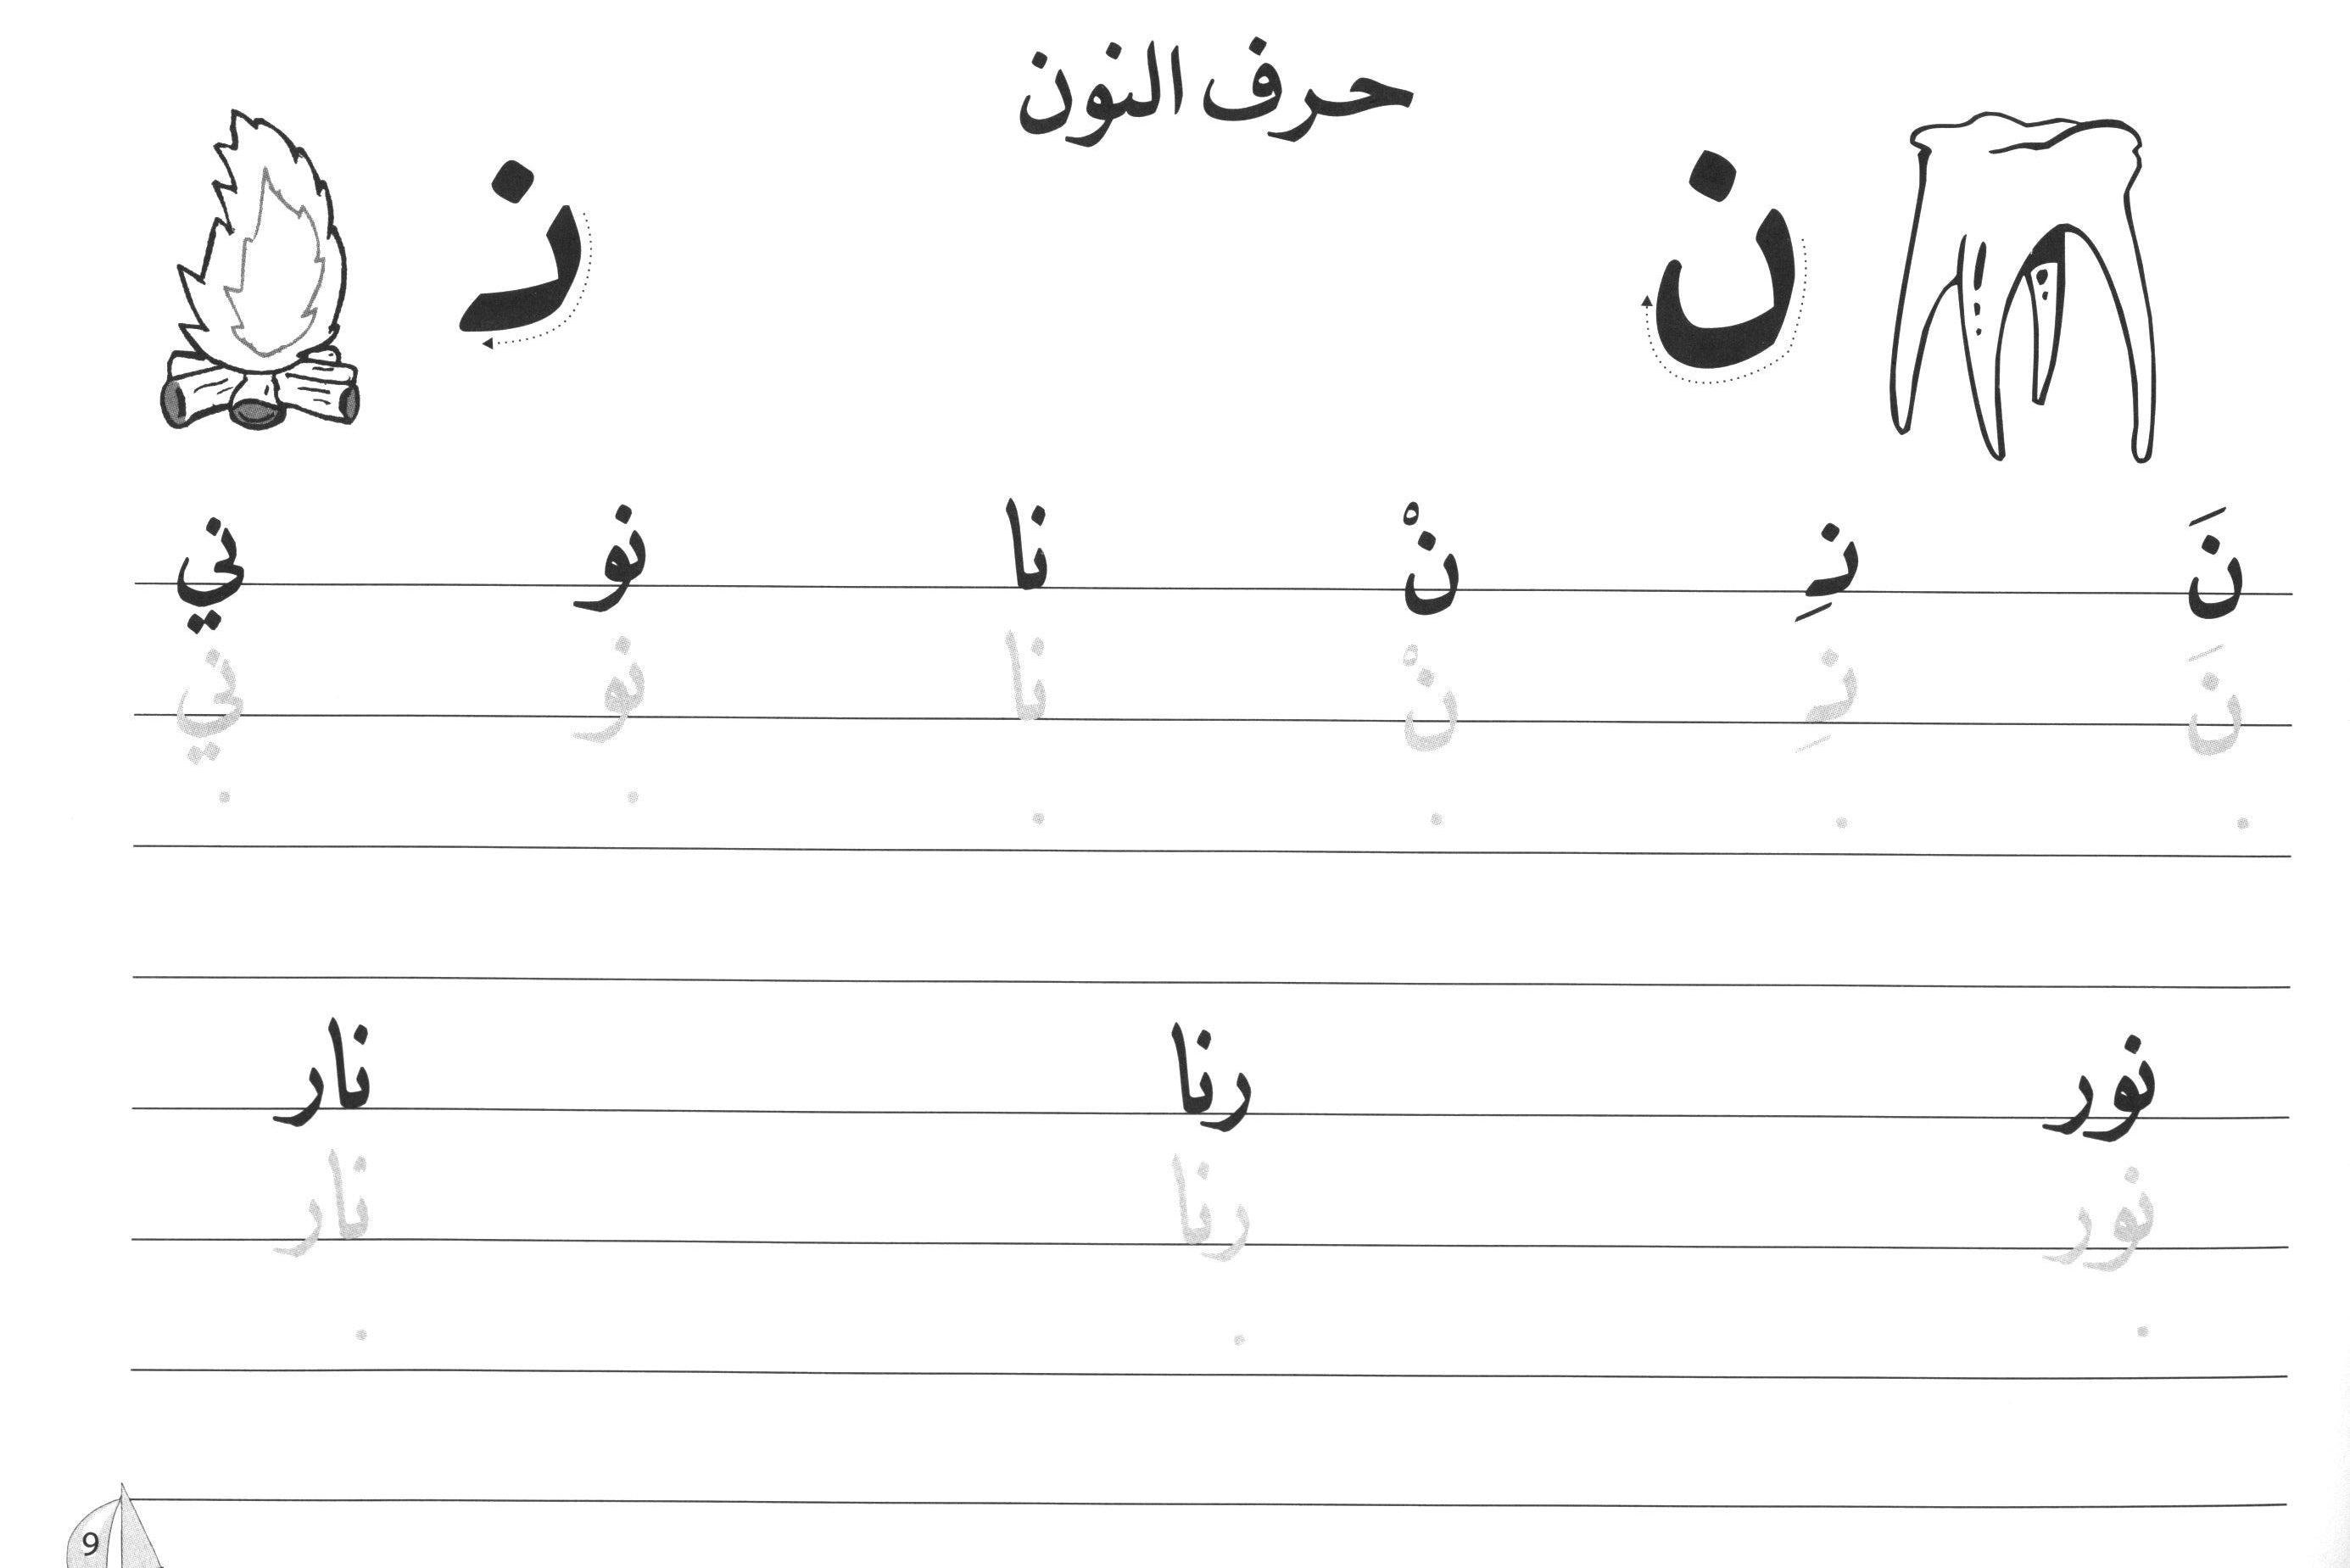 حرف النون
ن نـ
نَ نِـ نْ نا نو ني
نَ نِـ نْ نا نو ني
نور رنا نار
نور رنا نار
9